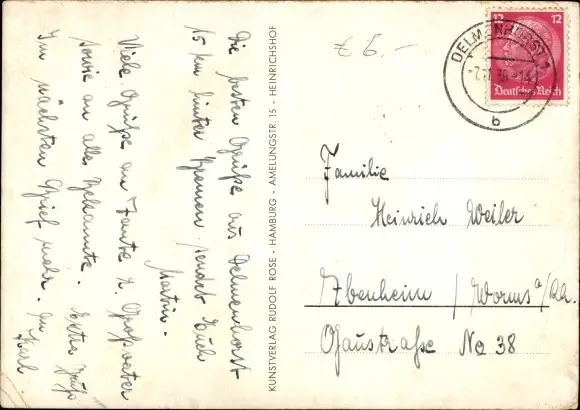 Die besten Grüße aus Delmenhorst
15 km hinter Bremen sendet Euch
Martin.
Viele Grüße an Tante & Großvater
sowie an alle Bekannte. Extra Gruß
Im nächsten Brief mehr. an Karl
KUNSTVERLAG RUDOLF ROSE - HAMBURG - AMELUNGSTR. 15 - HEINRICHSHOF
£ 6.-
DELMENHORST 1
b
12 12
Deutsches Reich
Familie
Heinrich Weiler
Ibenheim / Worms a/Rh.
Gaustraße No 38